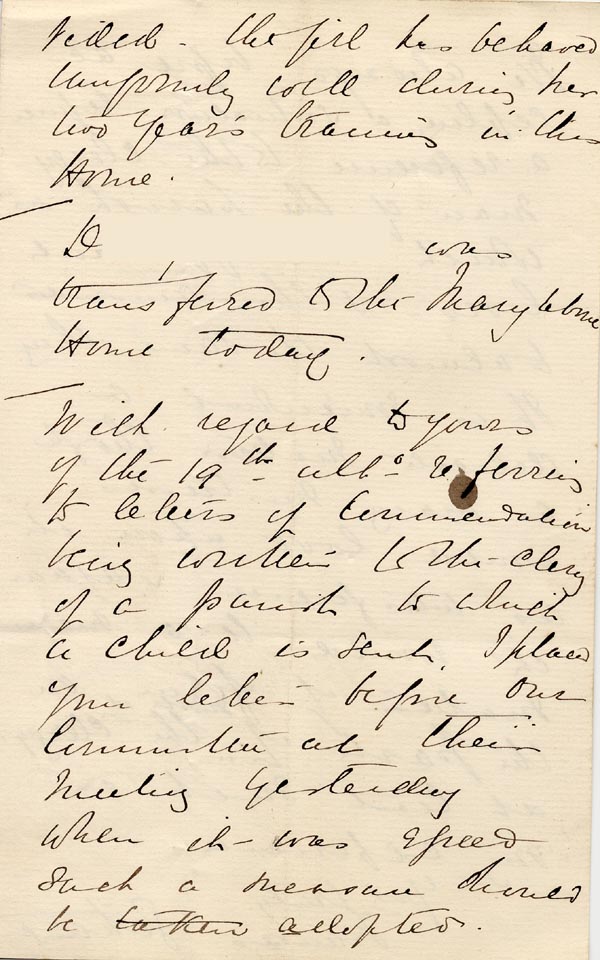 vided - the girl has behaved
uniformly well during her
two years training in this
Home.
D was
transferred to the Marylebone
Home today.
With regard to yours
of the 19th ulto referring
to letters of Commendation
being written to the clergy
of a parish to which
a child is sent, I placed
your letter before our
Committee at their
meeting yesterday
when it was agreed
such a measure should
be taken adopted.